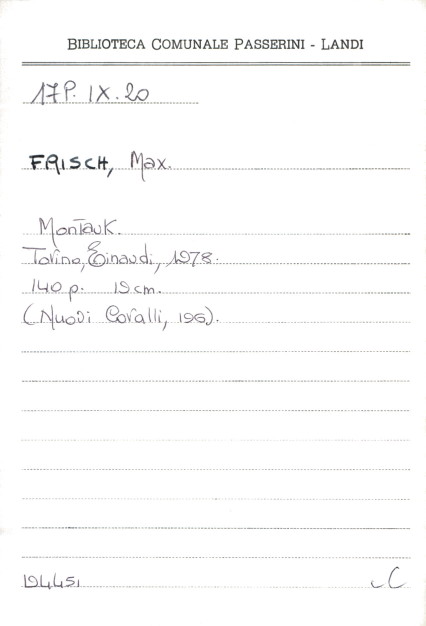 BIBLIOTECA COMUNALE PASSERINI - LANDI
17P. IX. 20
FRISCH, Max.
Montauk.
Torino, Einaudi, 1978.
140 p. 19 cm.
(Nuovi Coralli, 196).
194451